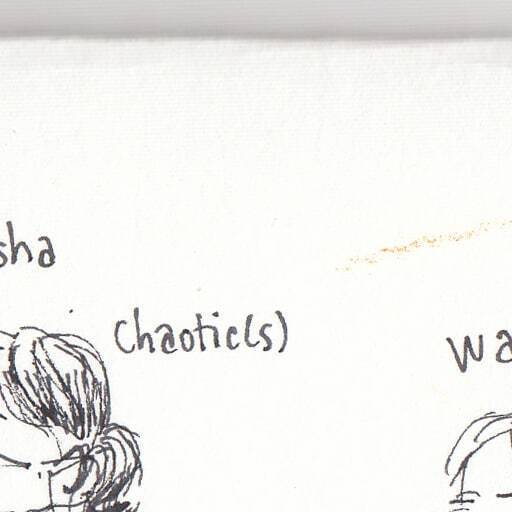 sha
Chaotic(s)
Wa